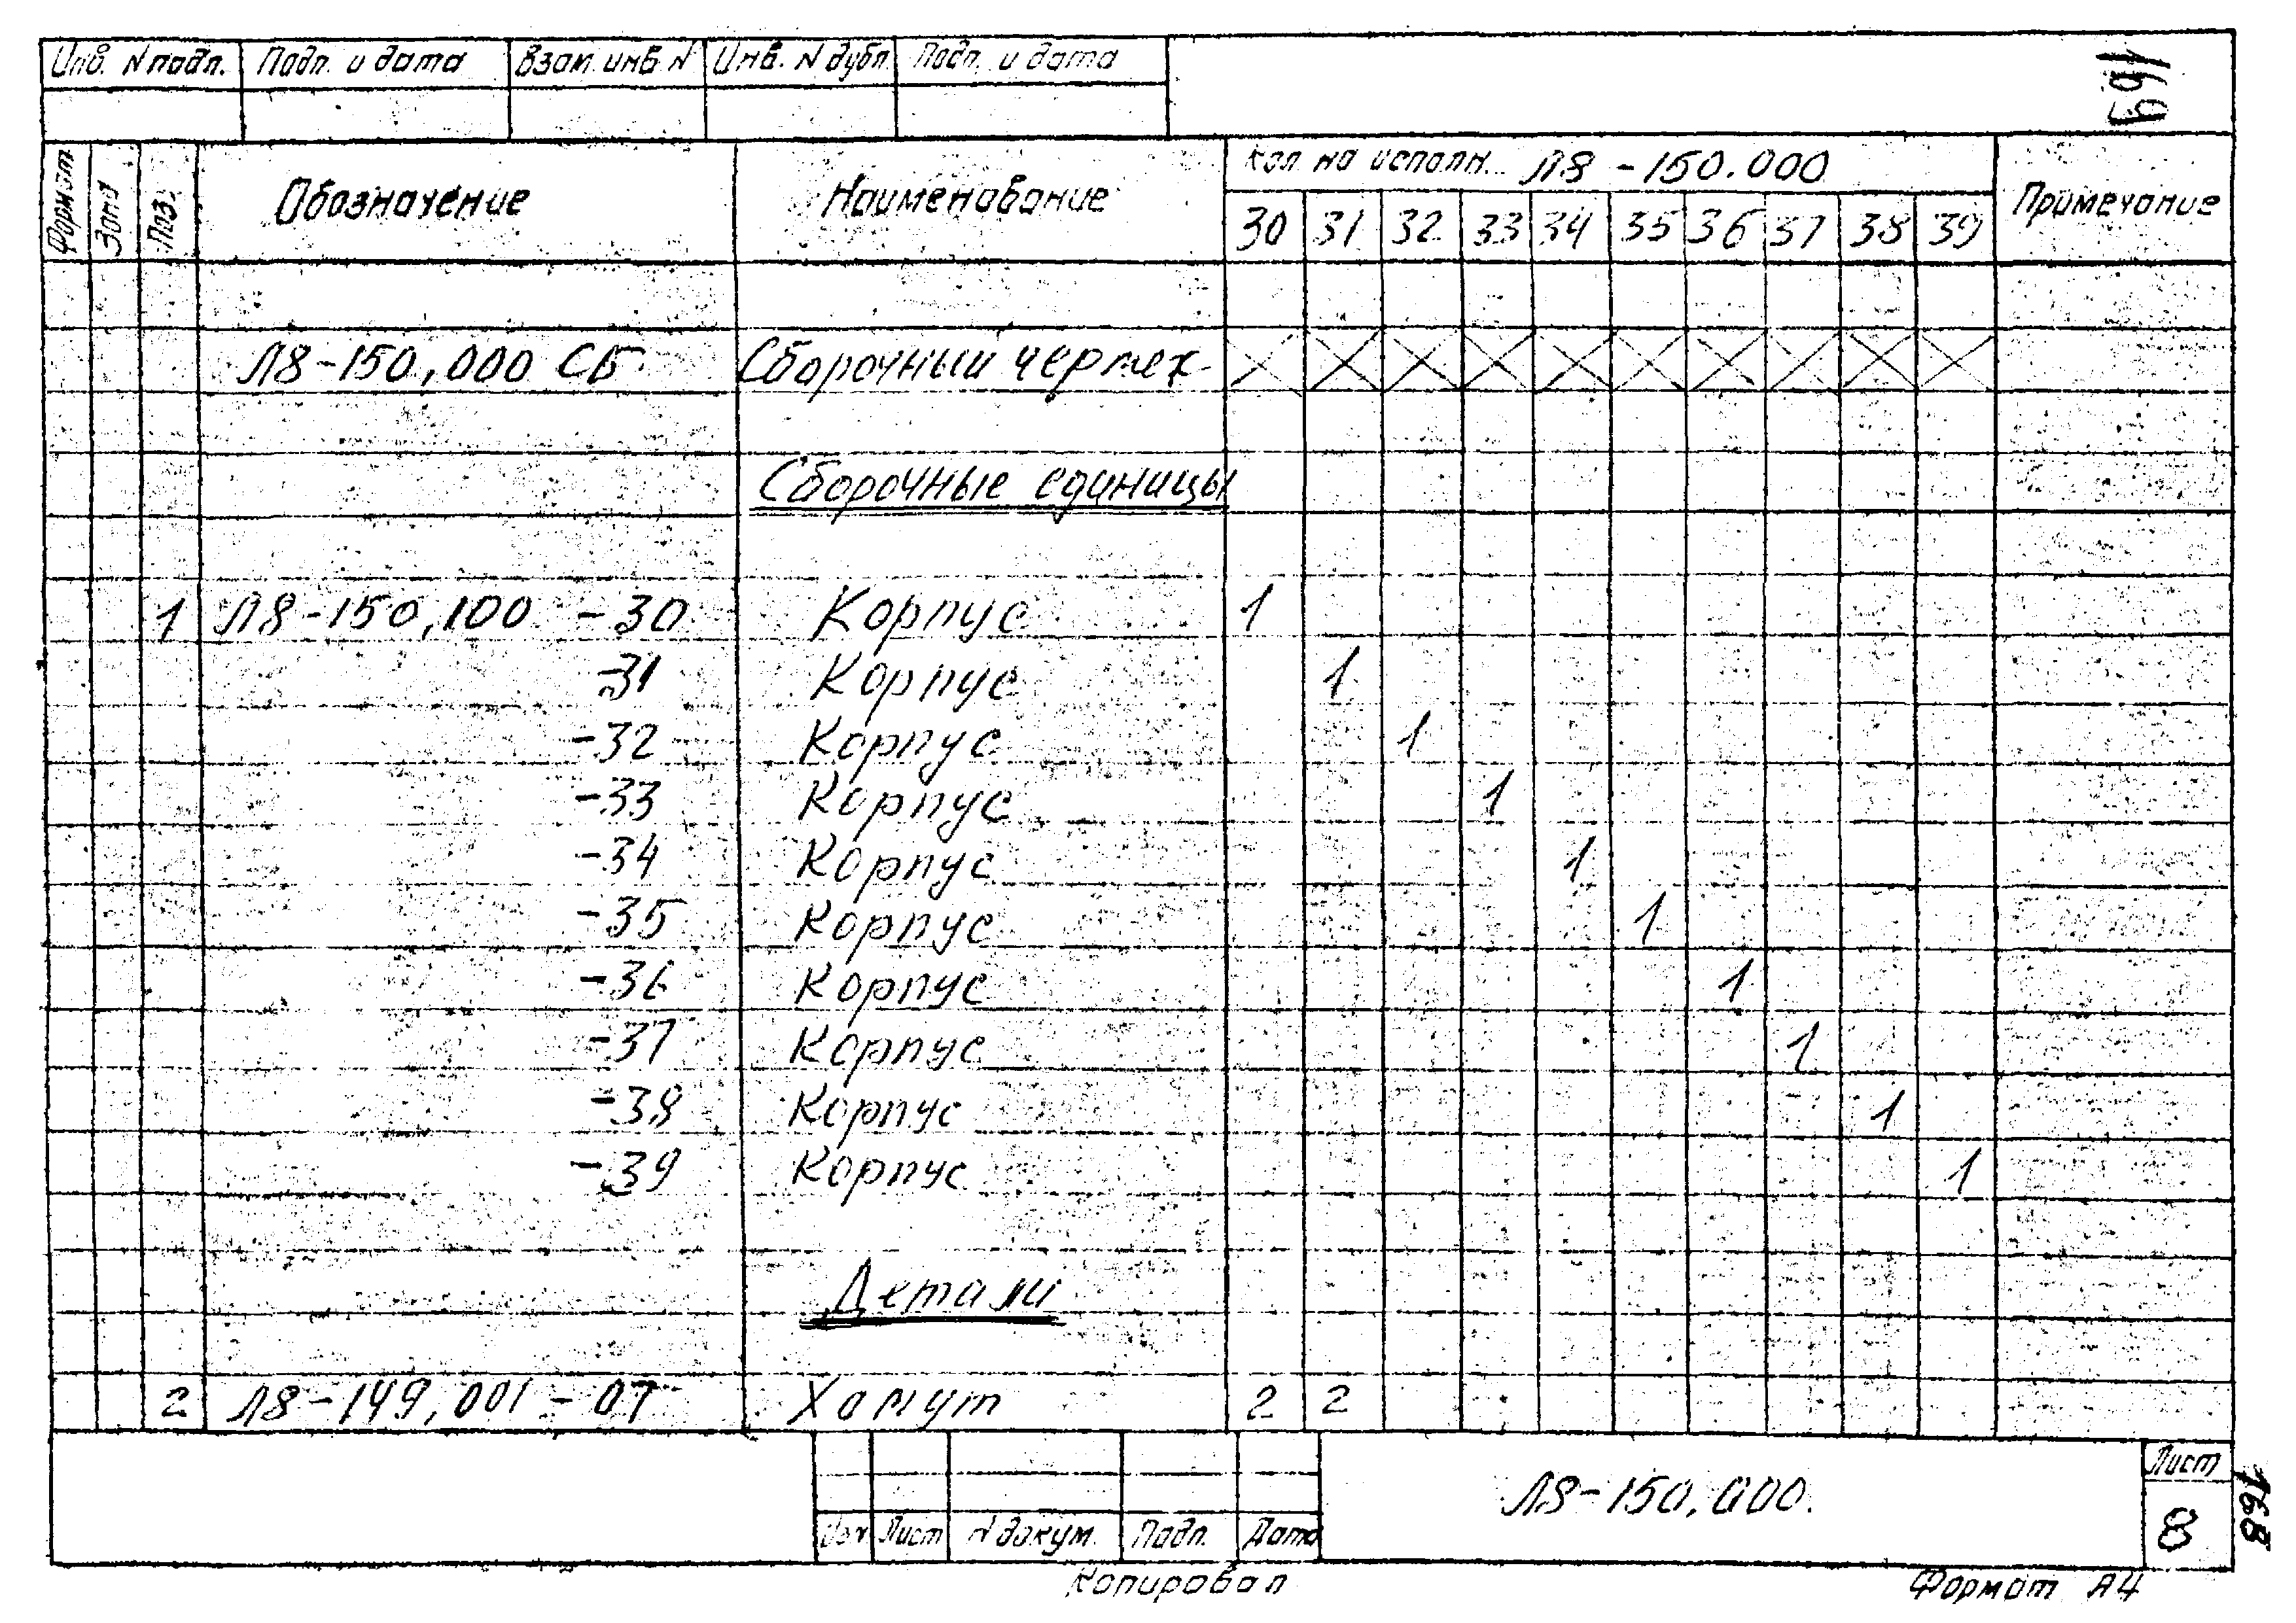 Инв. N подл. Подп. и дата Взам. инв. N Инв. N дубл. Подп. и дата
169
Формат Зона Поз. Обозначение Наименование Кол. на исполн. Л8 -150.000 Примечание
30 31 32 33 34 35 36 37 38 39
Л8-150,000 СБ Сборочный чертеж
Сборочные единицы
1 Л8-150,100 -30 Корпус 1
-31 Корпус 1
-32 Корпус 1
-33 Корпус 1
-34 Корпус 1
-35 Корпус 1
-36 Корпус 1
-37 Корпус 1
-38 Корпус 1
-39 Корпус 1
Детали
2 Л8-149,001 - 07 Хомут 2 2
Л8-150,000.
Лист
8
Изм Лист N докум. Подп. Дата
168
Копировал Формат А4